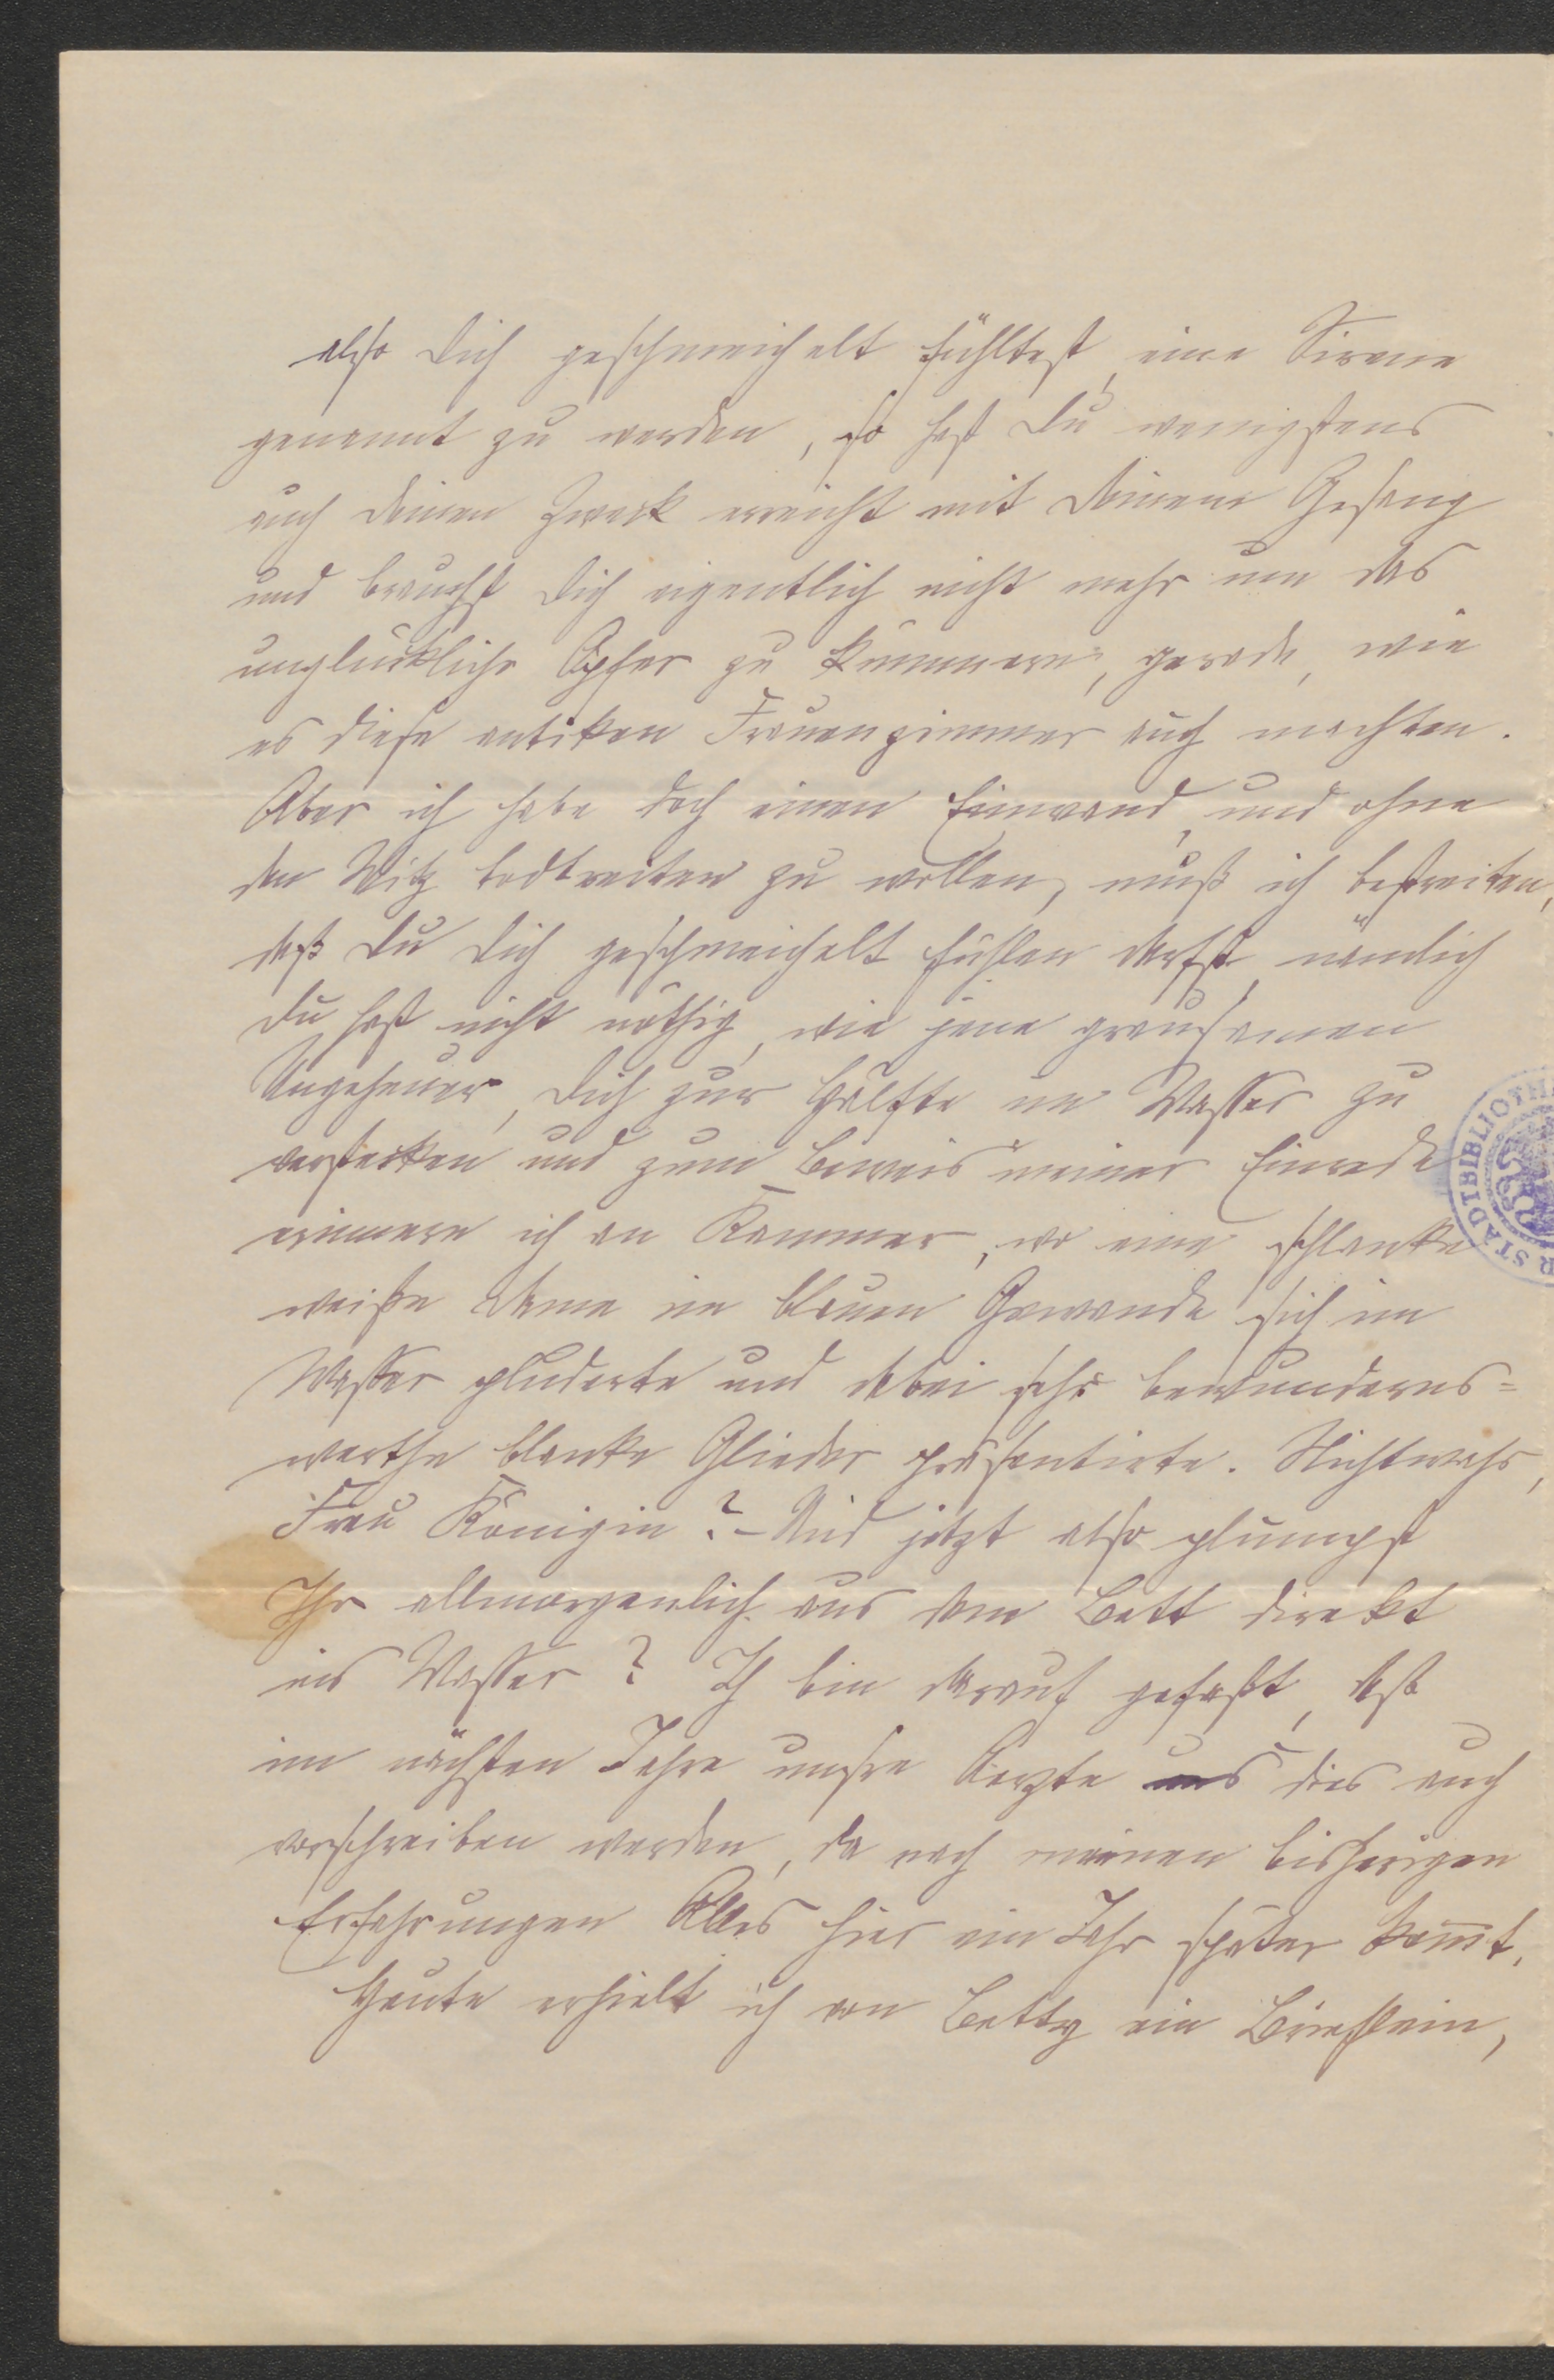 also Dich geschmeichelt fühltest, eine Sirene
genannt zu werden, so hast Du wenigstens
auch Deinen Zweck erreicht mit Deinem Gesang
und brauchst Dich eigentlich nicht mehr um das
unglückliche Opfer zu kümmern, gerade, wie
es diese antiken Frauenzimmer auch machten.
Aber ich habe doch einen Einwand, und ohne
den Witz todtreiten zu wollen, muß ich bestreiten,
daß Du Dich geschmeichelt fühlen darfst, nämlich
Du hast nicht nöthig, wie jene grausamen
Ungeheuer, Dich zur Hälfte im Wasser zu
verstecken und zum Beweis meiner Einrede
erinnere ich an Kammer, wo eine schlanke
weiße Dame im blauen Gewande sich im
Wasser pluderte und dabei sehr bewunderns=
werthe blanke Glieder präsentirte. Nichtwahr,
Frau Königin? – Und jetzt also plumpst
Ihr allmorgenlich aus dem Bett direkt
ins Wasser? Ich bin darauf gefaßt, daß
im nächsten Jahre unsre Aerzte uns dies auch
vorschreiben werden, da nach meinen bisherigen
Erfahrungen Alles hier ein Jahr später kom̅t.
Heute erhielt ich von Betty ein Brieflein,
STADTBIBLIOTH